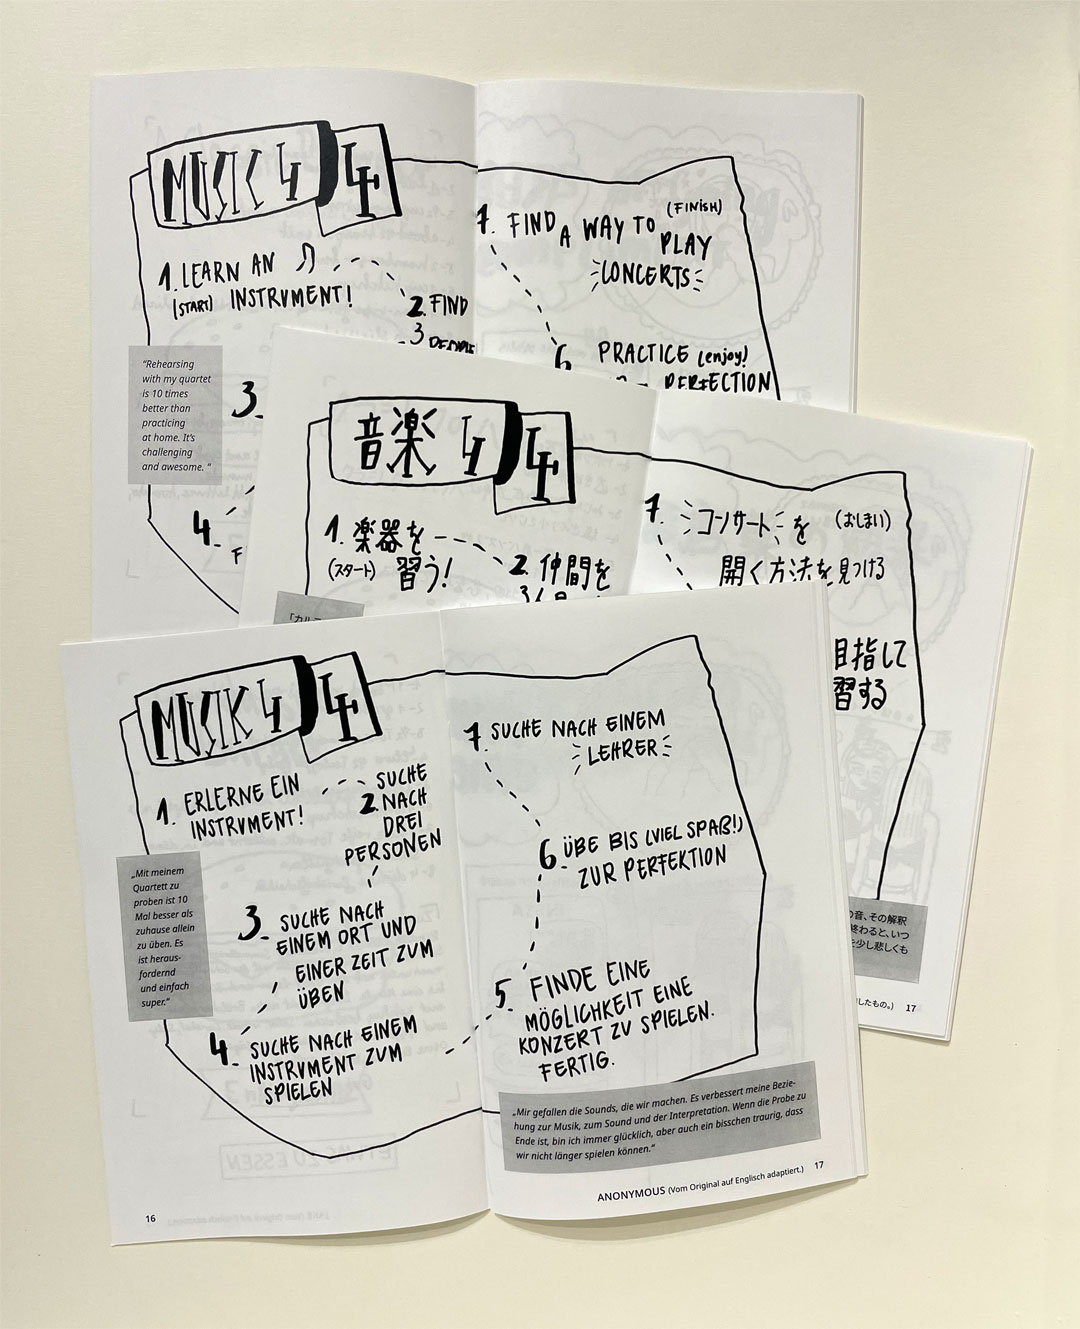 MUSIC 4 4
1. LEARN AN
(START) INSTRUMENT!
2. FIND
3
PEOPLE
"Rehearsing
with my quartet
is 10 times
better than
practicing
at home. It's
challenging
and awesome. "
3.
4.
F
7. FIND A WAY TO (FINISH)
PLAY
CONCERTS
6 PRACTICE (enjoy!)
PERFECTION
音楽 4 4
1. 楽器を
(スタート) 習う!
2. 仲間を
3人
7. コンサートを (おしまい)
開く方法を見つける
目指して
習する
の音、その解釈
終わると、いつ
少し悲しくも
したもの。) 17
MUSIK 4 4
1. ERLERNE EIN
INSTRUMENT!
SUCHE
2. NACH
DREI
PERSONEN
„Mit meinem
Quartett zu
proben ist 10
Mal besser als
zuhause allein
zu üben. Es
ist heraus-
fordernd
und einfach
super.“
3. SUCHE NACH
EINEM ORT UND
EINER ZEIT ZUM
ÜBEN
4. SUCHE NACH EINEM
INSTRUMENT ZUM
SPIELEN
16
7. SUCHE NACH EINEM
LEHRER
6. ÜBE BIS (VIEL SPAß!)
ZUR PERFEKTION
5. FINDE EINE
MÖGLICHKEIT EINE
KONZERT ZU SPIELEN.
FERTIG.
„Mir gefallen die Sounds, die wir machen. Es verbessert meine Bezie-
hung zur Musik, zum Sound und der Interpretation. Wenn die Probe zu
Ende ist, bin ich immer glücklich, aber auch ein bisschen traurig, dass
wir nicht länger spielen können.“
ANONYMOUS (Vom Original auf Englisch adaptiert.) 17